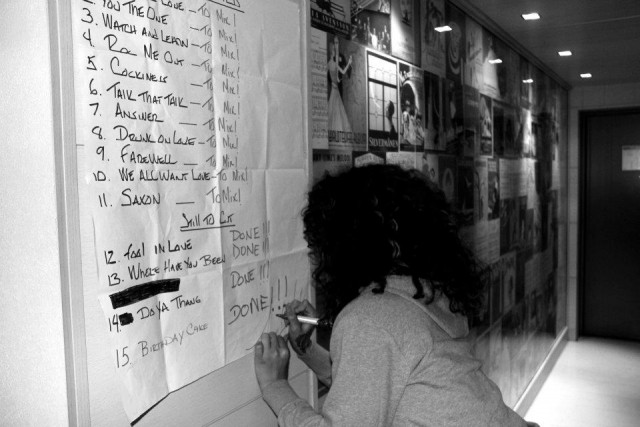 2. YOU THE ONE — TO MIK!
3. WATCH AND LEARN — TO MIK!
4. ROC ME OUT — TO MIK!
5. COCKINESS — TO MIK!
6. TALK THAT TALK — TO MIK!
7. ANSWER — TO MIK!
8. DRUNK ON LOVE — TO MIK!
9. FAREWELL — TO MIK!
10. WE ALL WANT LOVE — TO MIK!
11. SAXON — TO MIK!
STILL TO CUT
12. FOOL IN LOVE DONE!!!
13. WHERE HAVE YOU BEEN DONE!!!
DONE!!!
14. DO YA THANG DONE!!!
15. BIRTHDAY CAKE